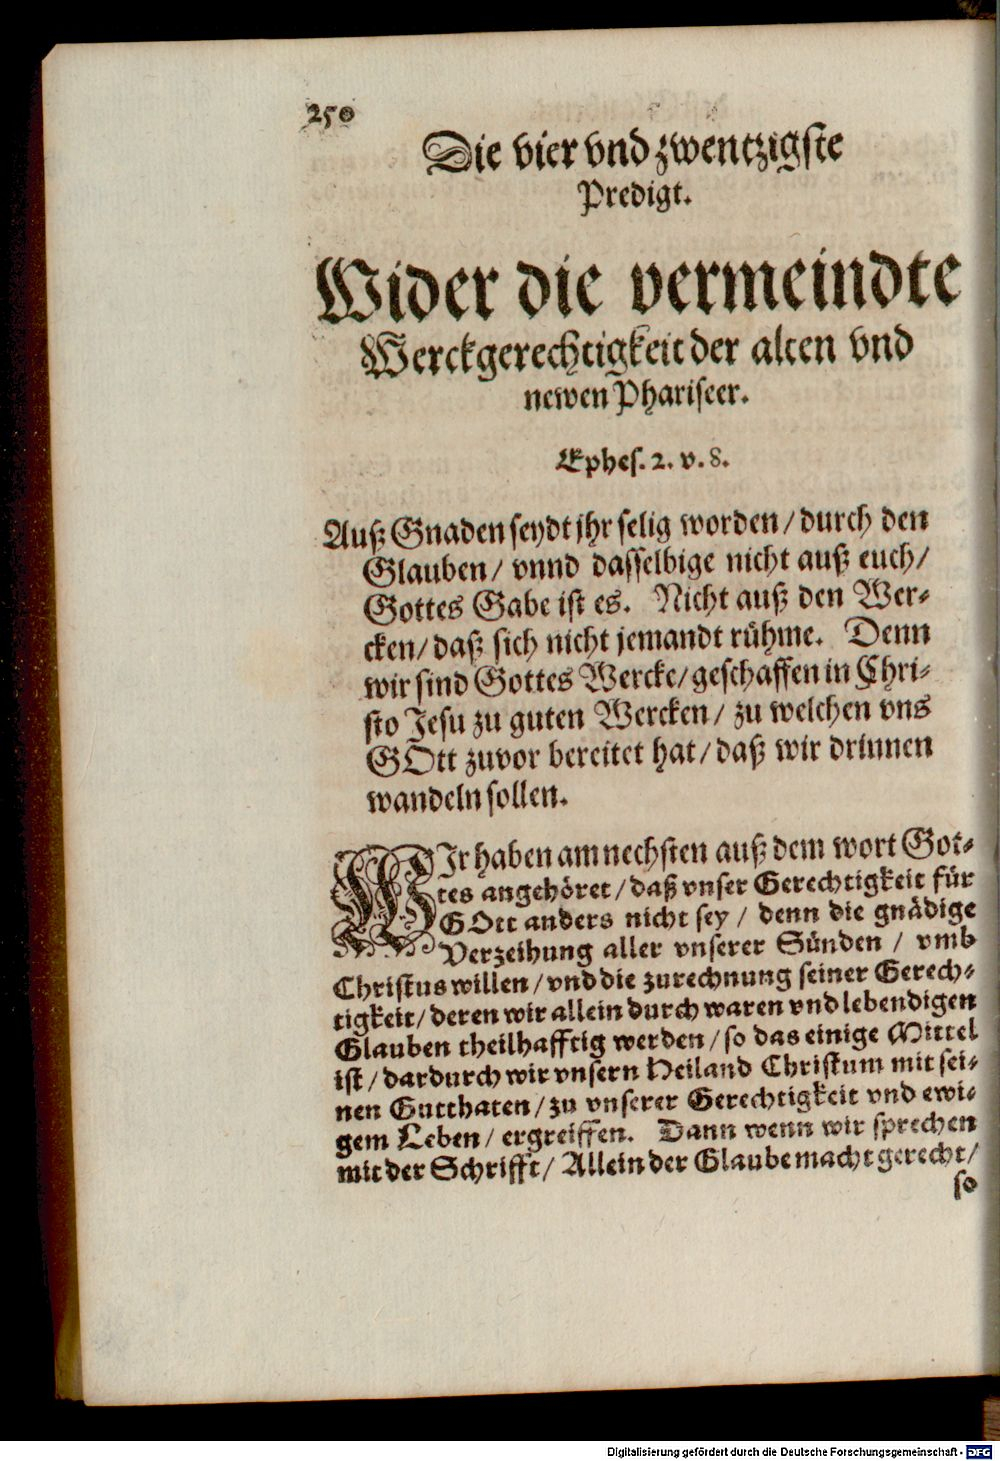 250
Die vier vnd zwentzigste
Predigt.
Wider die vermeindte
Werckgerechtigkeit der alten vnd
newen Phariseer.
Ephes. 2. v. 8.
Auß Gnaden seydt jhr selig worden / durch den
Glauben / vnnd dasselbige nicht auß euch /
Gottes Gabe ist es. Nicht auß den Wer-
cken / daß sich nicht jemandt rühme. Denn
wir sind Gottes Wercke / geschaffen in Chri-
sto Jesu zu guten Wercken / zu welchen vns
GOtt zuvor bereitet hat / daß wir drinnen
wandeln sollen.
WIr haben am nechsten auß dem wort Got-
tes angehöret / daß vnser Gerechtigkeit für
GOtt anders nicht sey / denn die gnädige
Verzeihung aller vnserer Sünden / vmb
Christus willen / vnd die zurechnung seiner Gerech-
tigkeit / deren wir allein durch waren vnd lebendigen
Glauben theilhafftig werden / so das einige Mittel
ist / dardurch wir vnsern Heiland Christum mit sei-
nen Gutthaten / zu vnserer Gerechtigkeit vnd ewi-
gem Leben / ergreiffen. Dann wenn wir sprechen
mit der Schrifft / Allein der Glaube macht gerecht /
so
Digitalisierung gefördert durch die Deutsche Forschungsgemeinschaft - DFG